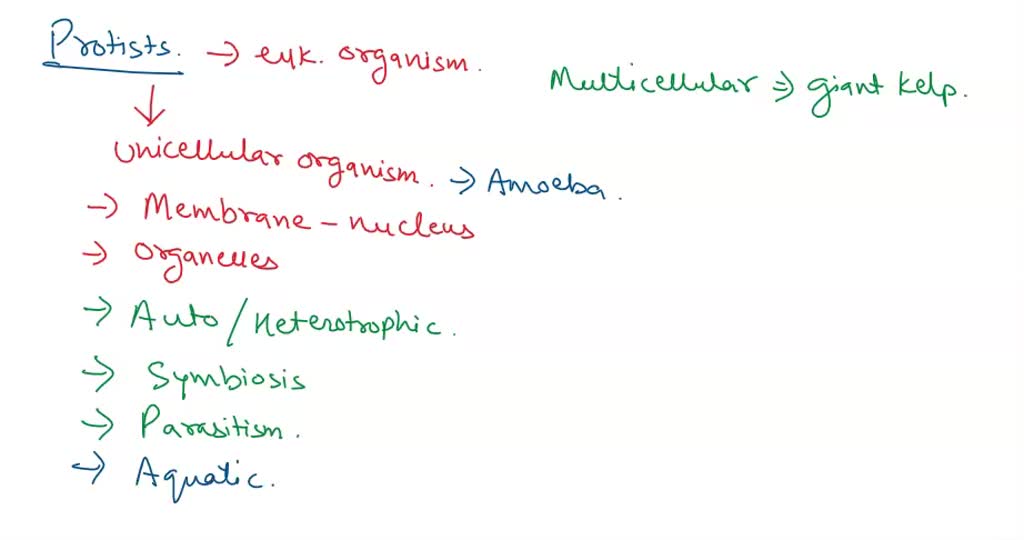 Protists. → euk. organism.
Multicellular ⇒ giant kelp.
↓
Unicellular organism. → Amoeba.
→ Membrane - nucleus
→ Organelles
→ Auto / Heterotrophic.
→ Symbiosis
→ Parasitism.
→ Aquatic.